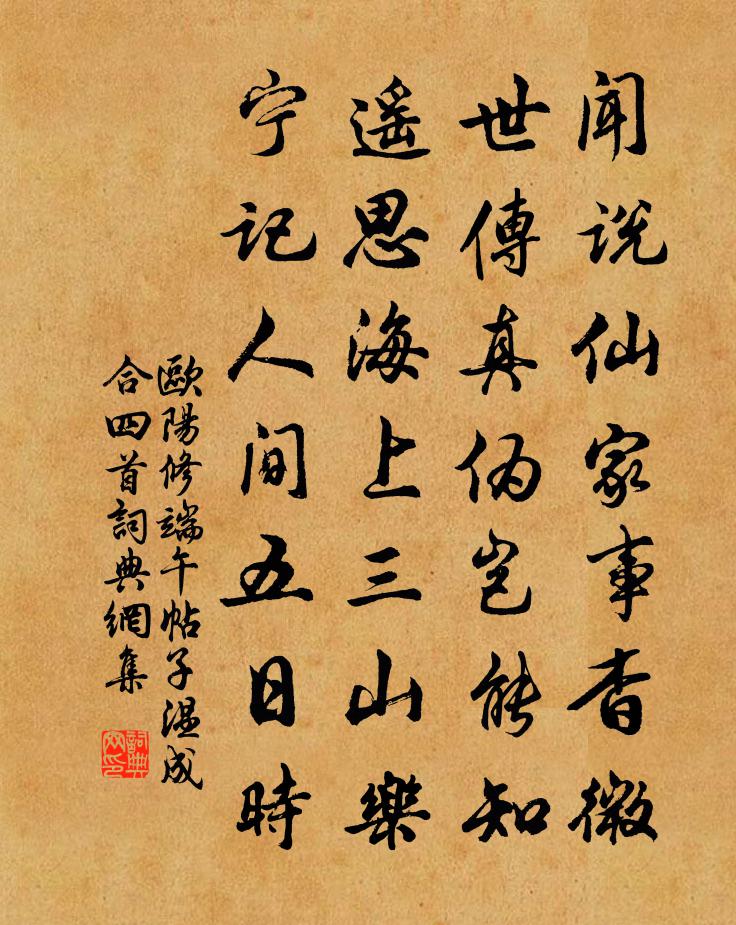 闻说仙家事杳微
世傳真伪岂能知
遥思海上三山樂
宁记人间五日時
歐陽修端午帖子温成
合四首詞典網集
詞典
网印